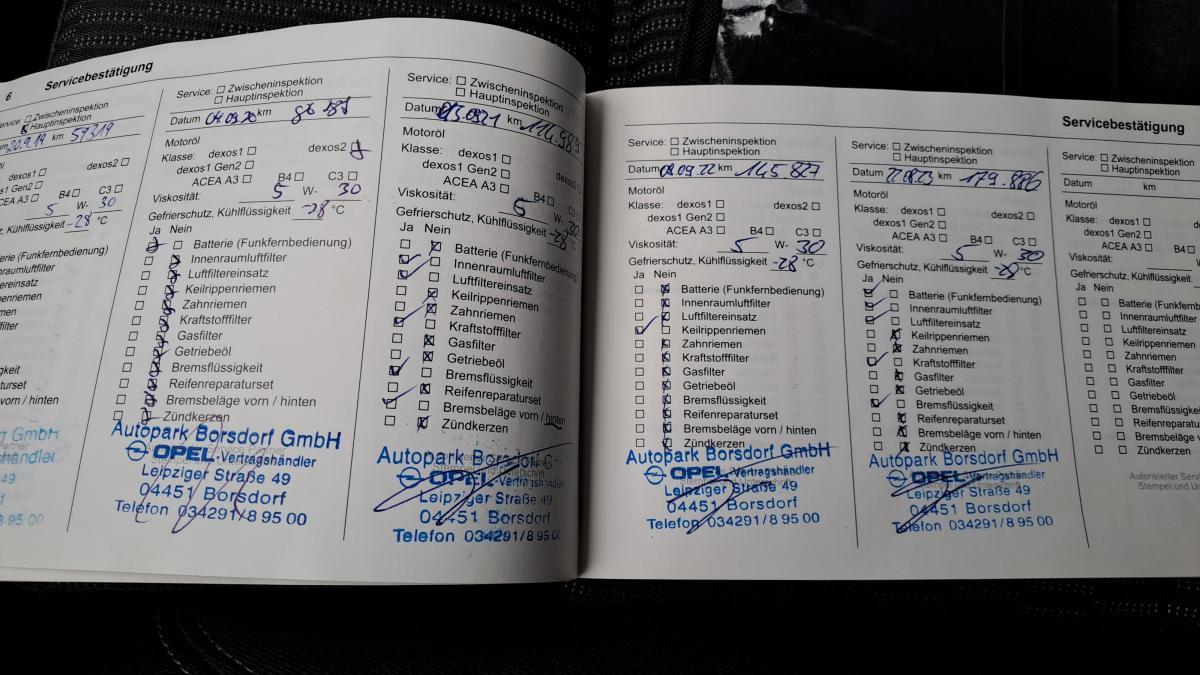 6
Servicebestätigung
Zwischeninspektion
Hauptinspektion
20.9.19 km 57319
dexos2
dexos1
dexos1 Gen2
ACEA A3 B4 C3
5 W- 30
Kühlflüssigkeit -28 °C
Service: Zwischeninspektion
Hauptinspektion
Datum 04.09.20 km
Motoröl
Klasse: dexos1 dexos2
dexos1 Gen2
ACEA A3 B4 C3
Viskosität: 5 W- 30
Gefrierschutz, Kühlflüssigkeit -28 °C
Ja Nein
Batterie (Funkfernbedienung)
Innenraumluftfilter
Luftfiltereinsatz
Keilrippenriemen
Zahnriemen
Kraftstofffilter
Gasfilter
Getriebeöl
Bremsflüssigkeit
Reifenreparaturset
Bremsbeläge vorn / hinten
Zündkerzen
Autopark Borsdorf GmbH
OPEL-Vertragshändler
Leipziger Straße 49
04451 Borsdorf
Telefon 034291/8 95 00
Service: Zwischeninspektion
Hauptinspektion
Datum km 114.989
Motoröl
Klasse: dexos1
dexos1 Gen2 dexos2
ACEA A3 B4 C3
Viskosität: 5 W- 30
Gefrierschutz, Kühlflüssigkeit -28 °C
Ja Nein
Batterie (Funkfernbedienung)
Innenraumluftfilter
Luftfiltereinsatz
Keilrippenriemen
Zahnriemen
Kraftstofffilter
Gasfilter
Getriebeöl
Bremsflüssigkeit
Reifenreparaturset
Bremsbeläge vorn / hinten
Zündkerzen
Autopark Borsdorf G
OPEL-Vertragshändler
Leipziger Straße 49
04451 Borsdorf
Telefon 034291/8 95 00
Servicebestätigung
Service: Zwischeninspektion
Hauptinspektion
Datum 08.09.22 km 145 827
Motoröl
Klasse: dexos1 dexos2
dexos1 Gen2
ACEA A3 B4 C3
Viskosität: 5 W- 30
Gefrierschutz, Kühlflüssigkeit -28 °C
Ja Nein
Batterie (Funkfernbedienung)
Innenraumluftfilter
Luftfiltereinsatz
Keilrippenriemen
Zahnriemen
Kraftstofffilter
Gasfilter
Getriebeöl
Bremsflüssigkeit
Reifenreparaturset
Bremsbeläge vorn / hinten
Zündkerzen
Autopark Borsdorf GmbH
OPEL-Vertragshändler
Leipziger Straße 49
04451 Borsdorf
Telefon 034291/8 95 00
Service: Zwischeninspektion
Hauptinspektion
Datum km 179.886
Motoröl
Klasse: dexos1 dexos2
dexos1 Gen2
ACEA A3 B4 C3
Viskosität: 5 W- 30
Gefrierschutz, Kühlflüssigkeit -28 °C
Ja Nein
Batterie (Funkfernbedienung)
Innenraumluftfilter
Luftfiltereinsatz
Keilrippenriemen
Zahnriemen
Kraftstofffilter
Gasfilter
Getriebeöl
Bremsflüssigkeit
Reifenreparaturset
Bremsbeläge vorn / hinten
Zündkerzen
Autopark Borsdorf GmbH
OPEL-Vertragshändler
Leipziger Straße 49
04451 Borsdorf
Telefon 034291/8 95 00
Service: Zwischeninspektion
Hauptinspektion
Datum km
Motoröl
Klasse: dexos1
dexos1 Gen2
ACEA A3 B4
Viskosität:
Gefrierschutz, Kühlflüssigkeit
Ja Nein
Batterie (Funkfernbe
Innenraumluftfilter
Luftfiltereinsatz
Keilrippenriemen
Zahnriemen
Kraftstofffilter
Gasfilter
Getriebeöl
Bremsflüssigkei
Reifenreparaturs
Bremsbeläge vo
Zündkerzen
Autorisierter Serv
Stempel und Un